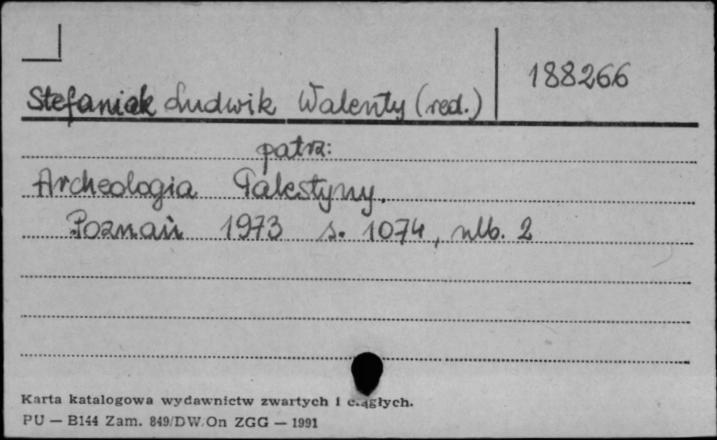 188266
Stefaniak Ludwik Walenty (red.)
patrz:
Archeologia Palestyny.
Poznań 1973 s. 1074, nlb. 2
Karta katalogowa wydawnictw zwartych i ciągłych.
PU — B144 Zam. 849/DW/On ZGG — 1991